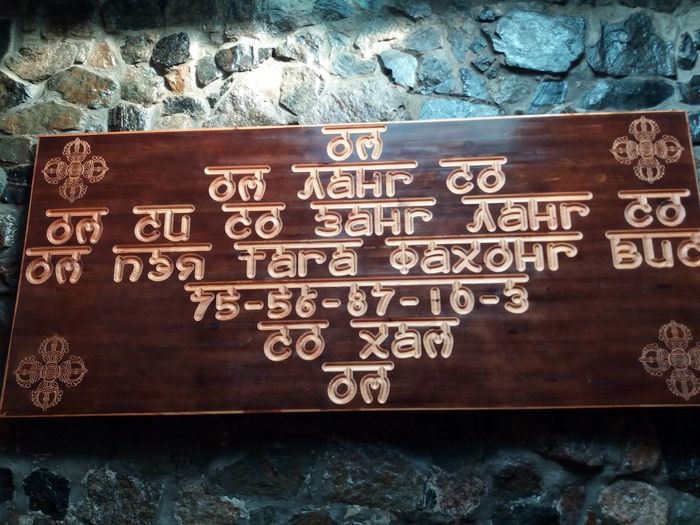 ОЛ
ОЛ ЛАНГ СО
ОЛ СИ СО ЗАНГ ЛАНГ СО
ОЛ ПЭЛ ТАГА ФАХОНГ ВИС
75-56-87-10-3
СО ХАЛ
ОЛ